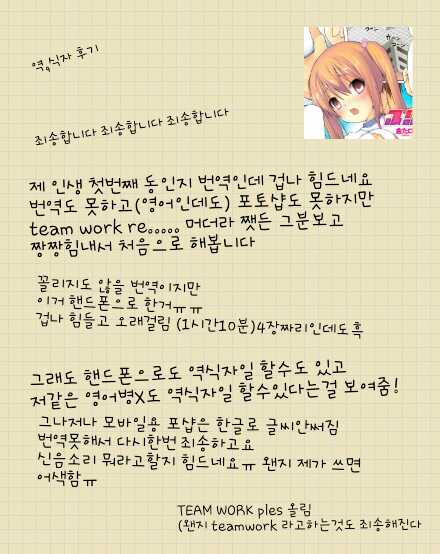 역,식자 후기
죄송합니다 죄송합니다 죄송합니다
제 인생 첫번째 동인지 번역인데 겁나 힘드네요
번역도 못하고(영어인데도) 포토샵도 못하지만
team work re。。。。。 머더라 쨋든 그분보고
짱짱힘내서 처음으로 해봅니다
꼴리지도 않을 번역이지만
이거 핸드폰으로 한거ㅠㅠ
겁나 힘들고 오래걸림 (1시간10분)4장짜리인데도흑
그래도 핸드폰으로도 역식자일 할수도 있고
저같은 영어병X도 역식자일 할수있다는걸 보여줌!
그나저나 모바일용 포샵은 한글로 글씨안써짐
번역못해서 다시한번 죄송하고요
신음소리 뭐라고할지 힘드네요ㅠ 왠지 제가 쓰면
어색함ㅠ
TEAM WORK ples 올림
(왠지 teamwork 라고하는것도 죄송해진다